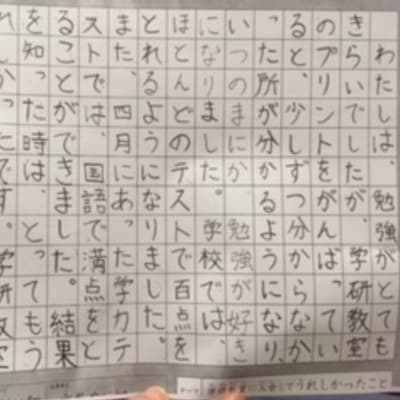 わたしは、勉強がとても
きらいでした。が、学研教室
のプリントをがんばってい
ると、少しずつ分からなか
った所が分かるようになり、
いつのまにか勉強が好き
になりました。学校では、
ほとんどのテストで百点を
とれるようになりました。
また、四月にあった学力テ
ストでは、国語で満点をと
ることができました。結果
を知った時は、とってもう
れしかったです。学研教室
テーマ 学研教室に入会してうれしかったこと